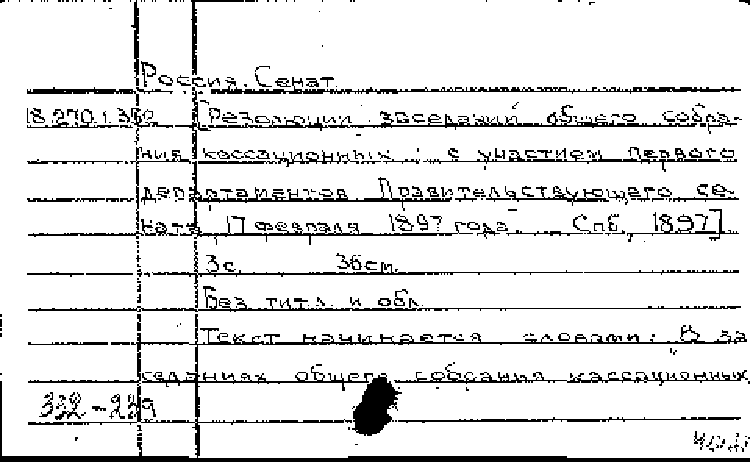 Россия. Сенат
18.270.1.362 [Резолюции заседаний общего собра-
ния кассационных : с участием Первого
департаментов Правительствующего се-
ната 17 февраля 1897 года Спб, 1897]
3с. 36см.
Без тит.л. и обл.
Текст начинается словами: "В за
седаниях общего собрания кассационных
332-239